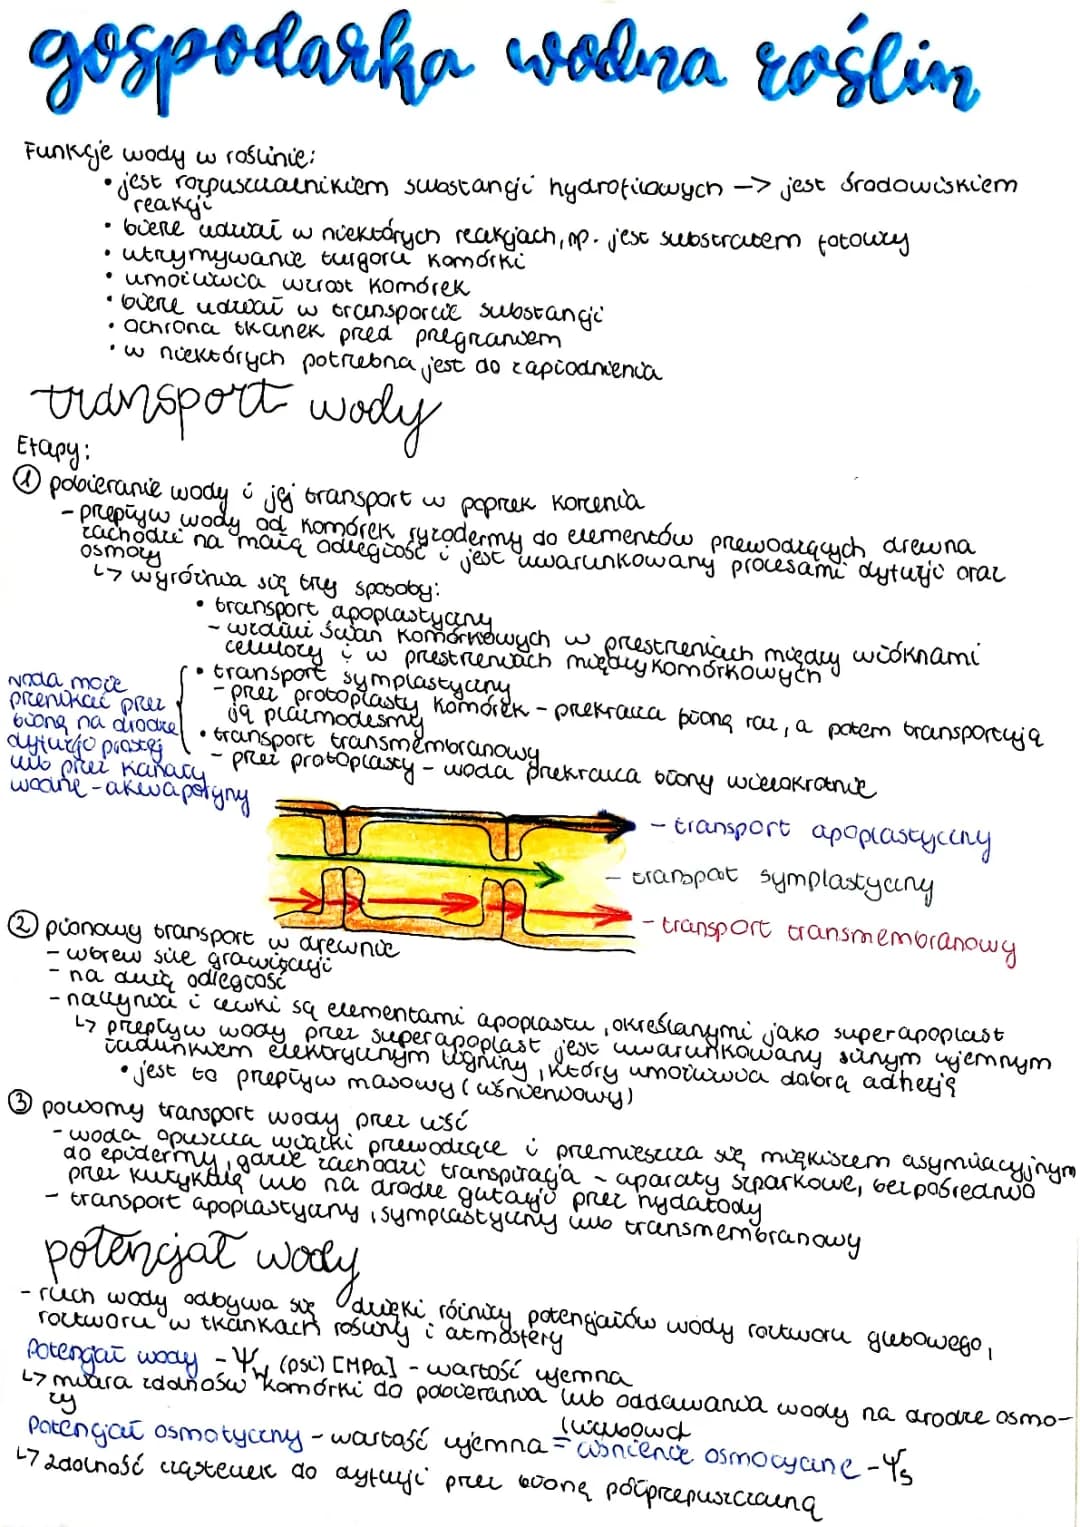 gospodarka wodna roślin
Funkcje wody w roślinie:
• jest rozpuszczalnikiem substancji hydrofilowych -> jest środowiskiem
reakcji
• bierze udział w niektórych reakcjach, np. jest substratem fotolizy
• utrzymywanie turgoru komórki
• umożliwia wzrost komórek
• bierze udział w transporcie substancji
• ochrona tkanek przed przegrzaniem
• w niektórych potrzebna jest do zapłodnienia
transport wody
Etapy:
① pobieranie wody i jej transport w poprzek korzenia
- przepływ wody od komórek ryzodermy do elementów przewodzących drewna
zachodzi na małą odległość i jest uwarunkowany procesami dyfuzji oraz
osmozy
↳ wyróżnia się trzy sposoby:
• transport apoplastyczny
- wzdłuż ścian komórkowych w przestrzeniach między włóknami
celulozy i w przestrzeniach międzykomórkowych
• transport symplastyczny
- przez protoplasty komórek - przekracza błonę raz, a potem transportują
ją plazmodesmy
• transport transmembranowy
- przez protoplasty - woda przekracza błony wielokrotnie
woda może
przenikać przez
błonę na drodze
dyfuzji prostej
lub przez kanały
wodne - akwaporyny
- transport apoplastyczny
- transport symplastyczny
- transport transmembranowy
② pionowy transport w drewnie
- wbrew sile grawitacji
- na dużą odległość
- naczynia i cewki są elementami apoplastu, określanymi jako superapoplast
↳ przepływ wody przez superapoplast jest uwarunkowany silnym ujemnym
ładunkiem elektrycznym ligniny, który umożliwia dobrą adhezję
• jest to przepływ masowy (ciśnieniowy)
③ poziomy transport wody przez liść
- woda opuszcza wiązki przewodzące i przemieszcza się miękiszem asymilacyjnym
do epidermy, gdzie zachodzi transpiracja - aparaty szparkowe, bezpośrednio
przez kutykulę lub na drodze gutacji przez hydatody
- transport apoplastyczny, symplastyczny lub transmembranowy
potencjał wody
- ruch wody odbywa się dzięki różnicy potencjałów wody roztworu glebowego,
roztworu w tkankach rośliny i atmosfery
Potencjał wody - Ψw (psi) [MPa] - wartość ujemna
↳ miara zdolności komórki do pobierania lub oddawania wody na drodze osmo-
zy
Potencjał osmotyczny - wartość ujemna = ciśnienie osmotyczne - Ψs
↳ zdolność cząsteczek do dyfuzji przez błonę półprzepuszczalną